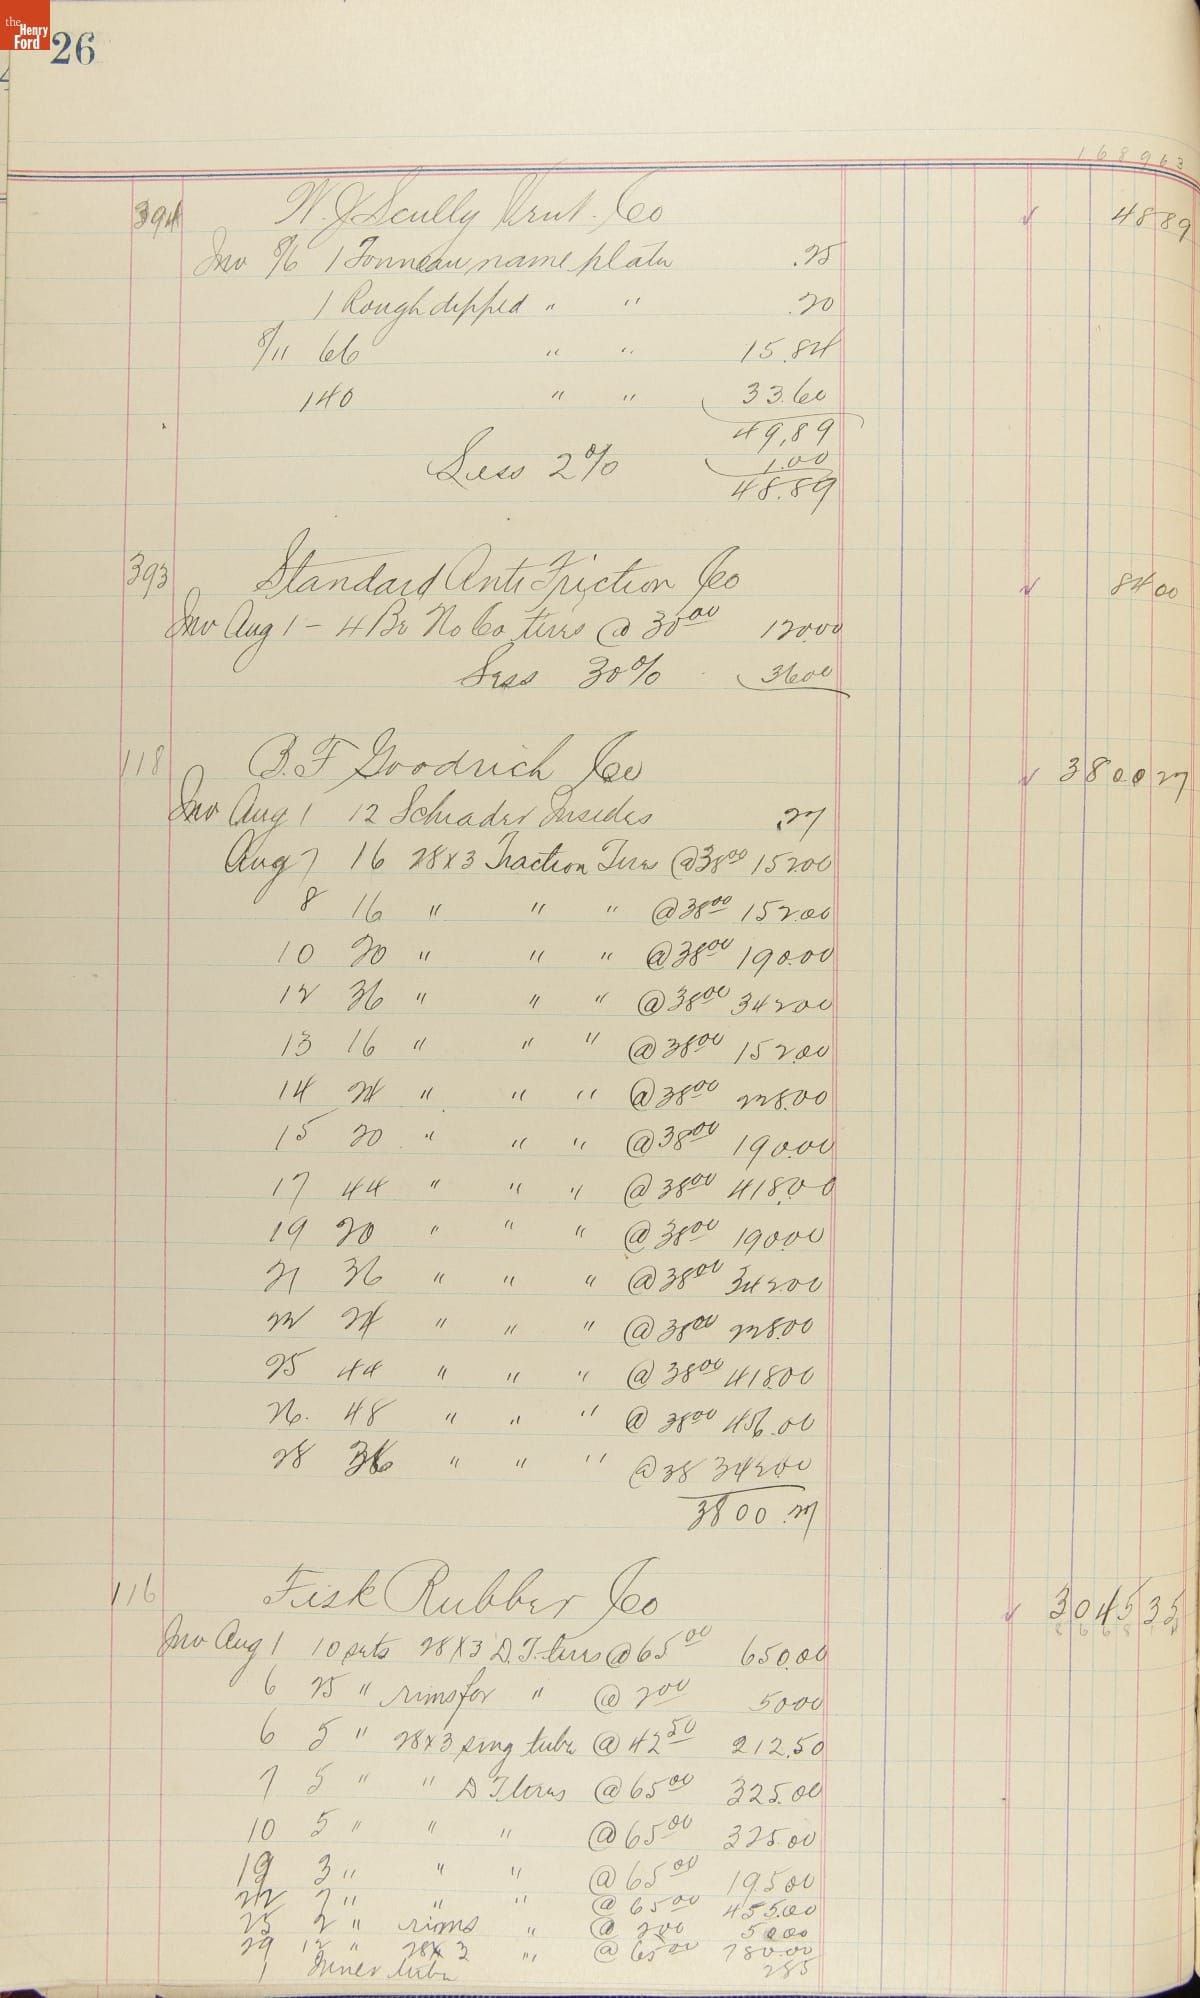 the Henry Ford
26
168963
394 W. J. Scully Co 4889
Inv 8/6 1 Tonneau name plate .25
1 Rough dipped " " .20
8/11 66 " " 15.84
140 " " 33.60
49,89
Less 2% 1.00
48.89
393 Standard Anti Friction Co 8400
Inv Aug 1 - 4 Br No 60 tires @ 30 00 120.00
Less 30% 3600
118 B. F Goodrich Co 380027
Inv Aug 1 12 Schrader Insides .27
Aug 7 16 28x3 Traction Tires @ 38 00 152.00
8 16 " " " @ 38 00 152.00
10 20 " " " @ 38 00 190.00
12 36 " " " @ 38 00 342.00
13 16 " " " @ 38 00 152.00
14 24 " " " @ 38 00 228.00
15 20 " " " @ 38 00 190.00
17 44 " " " @ 38 00 418.00
19 20 " " " @ 38 00 190.00
21 36 " " " @ 38 00 342.00
22 24 " " " @ 38 00 228.00
25 44 " " " @ 38 00 418.00
26. 48 " " " @ 38 00 456.00
28 36 " " " @ 38 342.00
3800.27
116 Fisk Rubber Co 304535
Inv Aug 1 10 sets 28x3 D. T. tires @ 65 00 650.00
6 25 " rims for " @ 2 00 50.00
6 5 " 28x3 sing tube @ 42 50 212.50
7 5 " " D T tires @ 65 00 325.00
10 5 " " " @ 65 00 325.00
19 3 " " " @ 65 00 195.00
22 7 " " " @ 65 00 455.00
25 2 " rims " @ 200 50.00
29 12 " 28x3 " @ 65 00 780.00
1 Inner tube 285